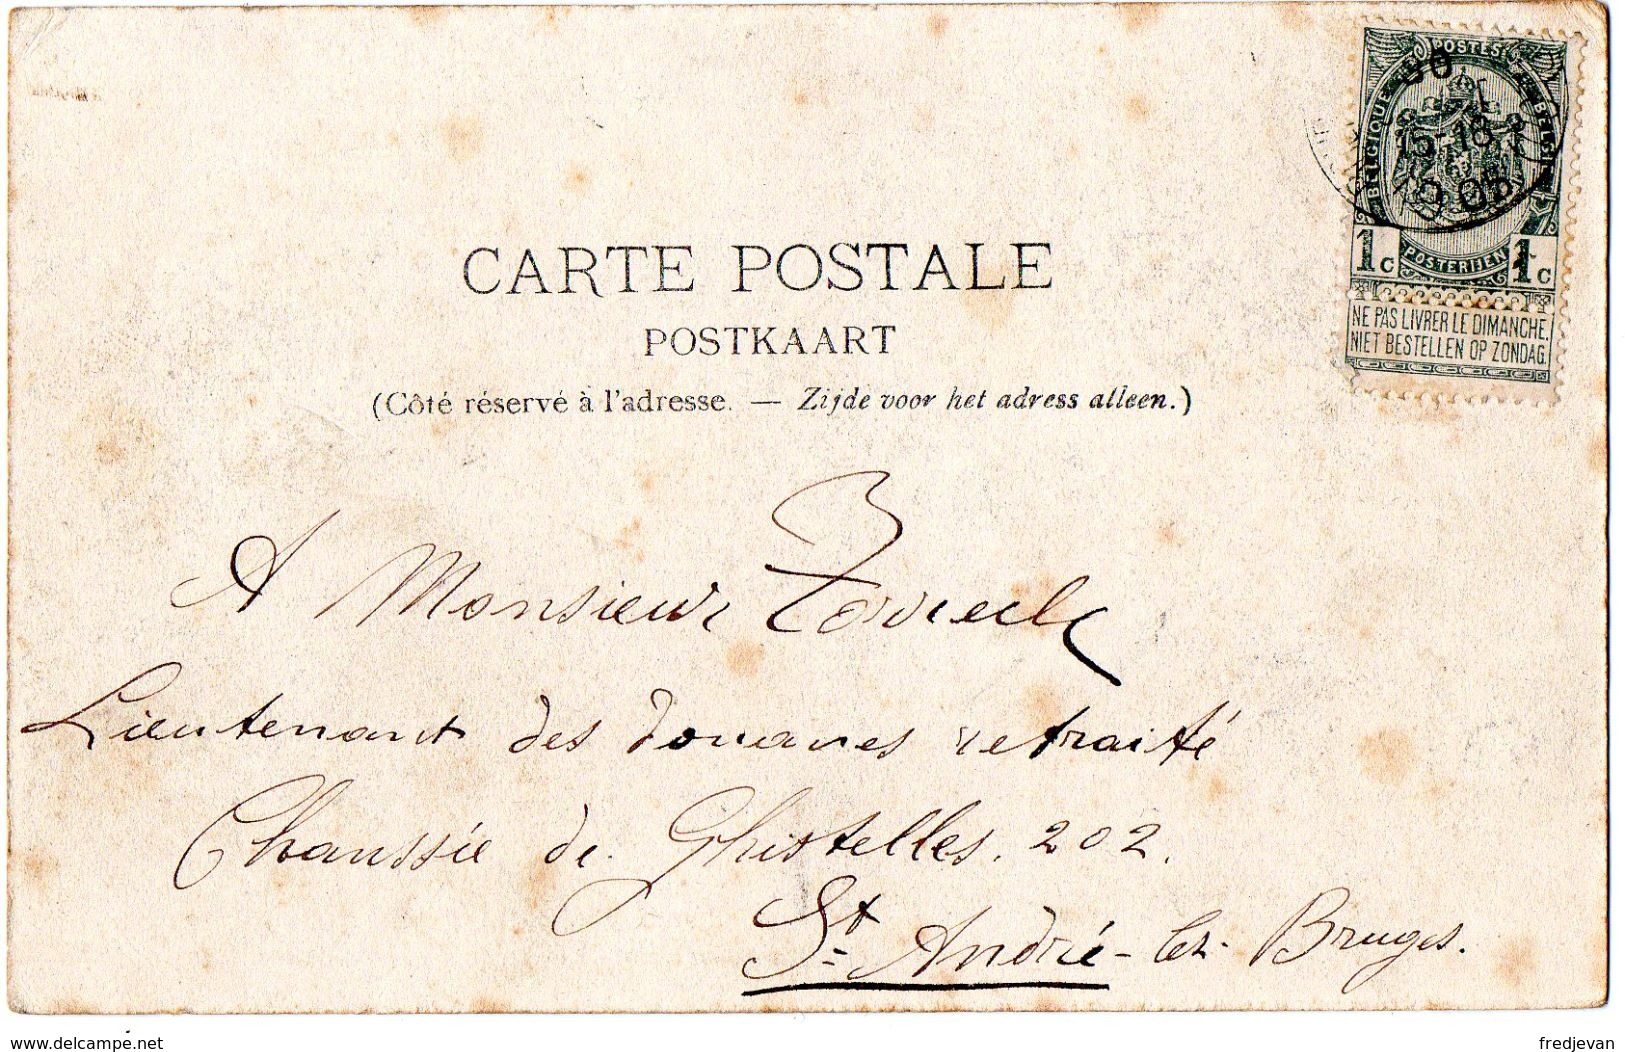 POSTES
BELGIQUE
BELGIË
15-18
1905
1c POSTERIJEN 1c
NE PAS LIVRER LE DIMANCHE.
NIET BESTELLEN OP ZONDAG.
CARTE POSTALE
POSTKAART
(Côté réservé à l'adresse. — Zijde voor het adress alleen.)
A Monsieur
Lieutenant des douanes retraité
Chaussée de Ghistelles. 202.
St André-lez-Bruges.
delcampe.net
fredjevan